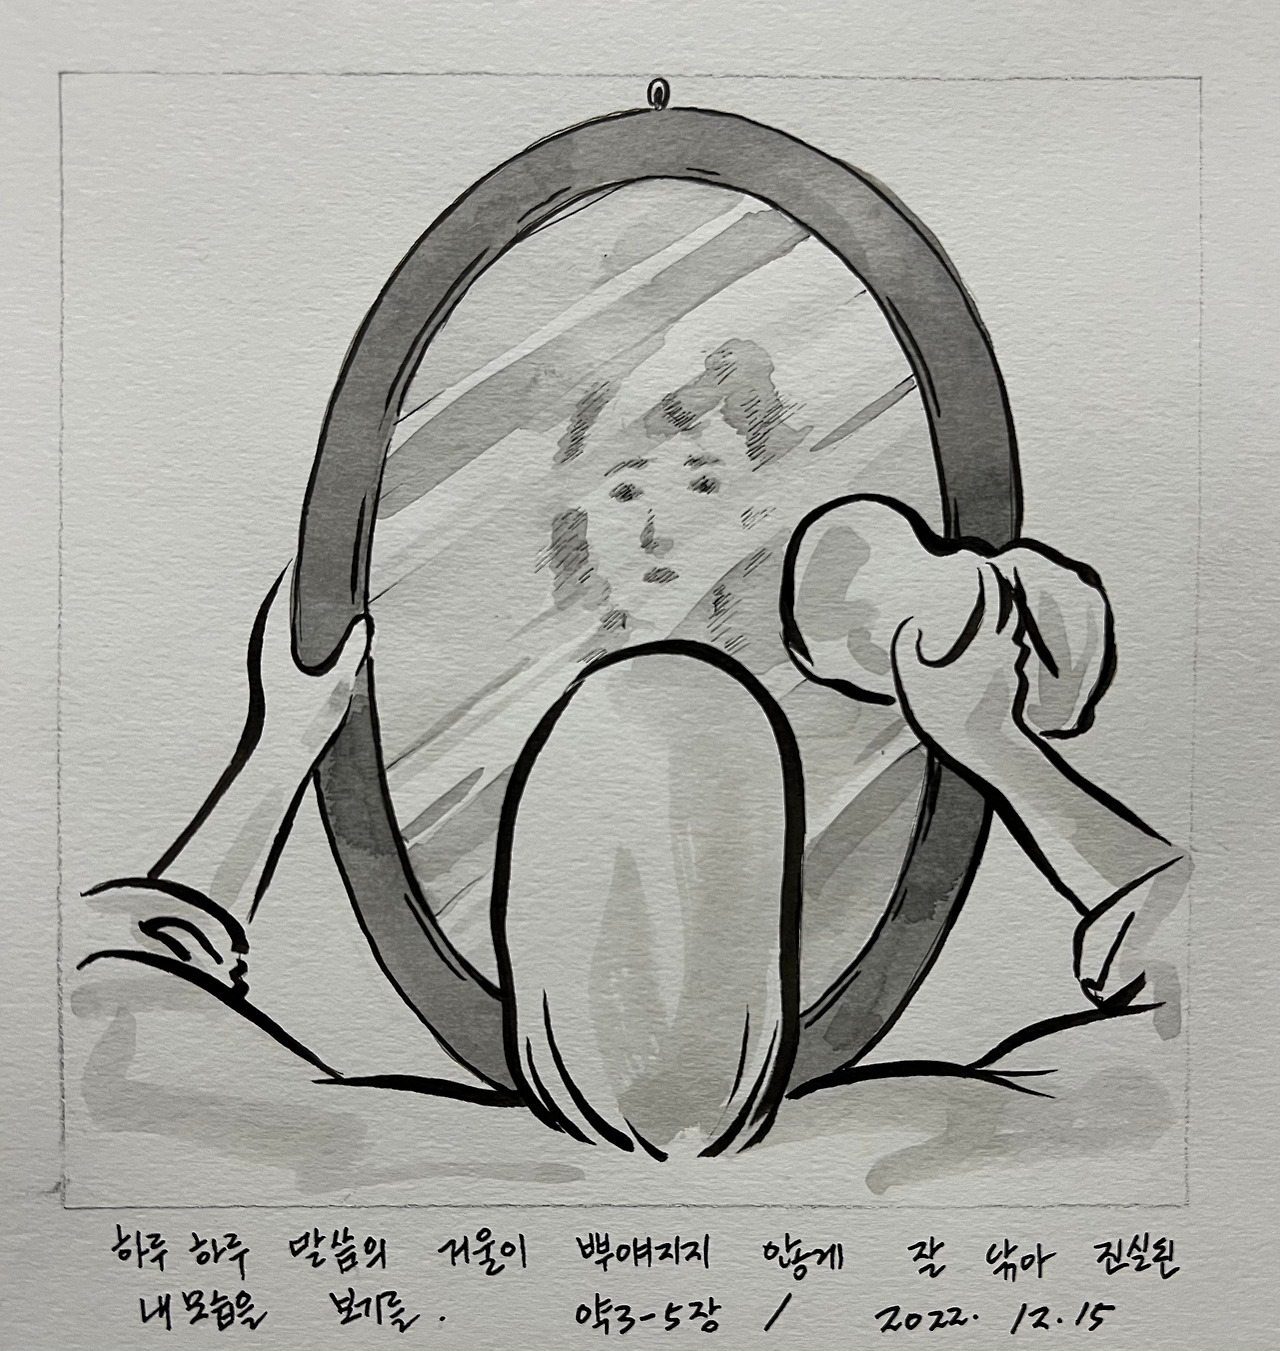 하루 하루 말씀의 거울이 뿌얘지지 않게 잘 닦아 진실된
내 모습을 보기를. 약3-5장 / 2022. 12. 15